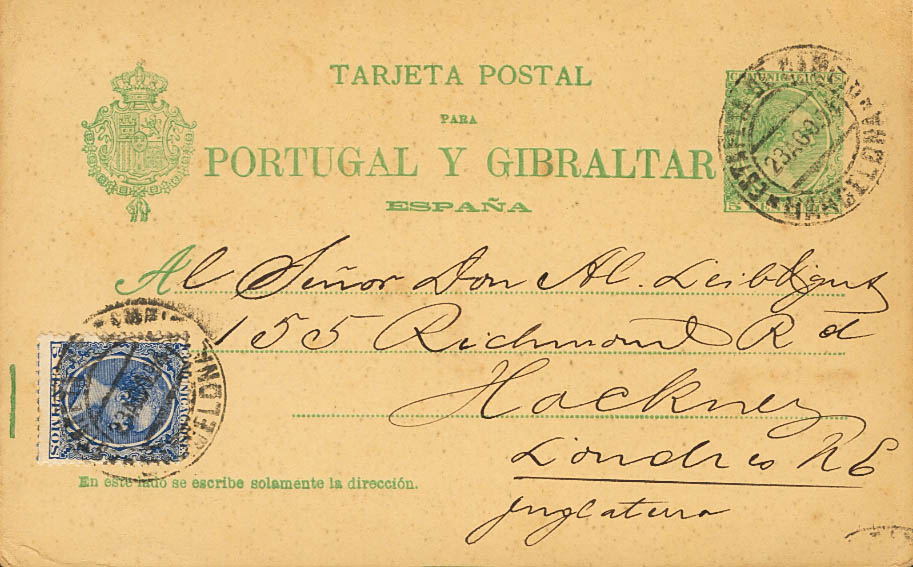 TARJETA POSTAL
PARA
PORTUGAL Y GIBRALTAR
ESPAÑA
COMUNICACIONES
Al Señor Don Al.
155 Richmond Rd
Hackney
Londres NE
Inglaterra
COMUNICACIONES
En este lado se escribe solamente la dirección.